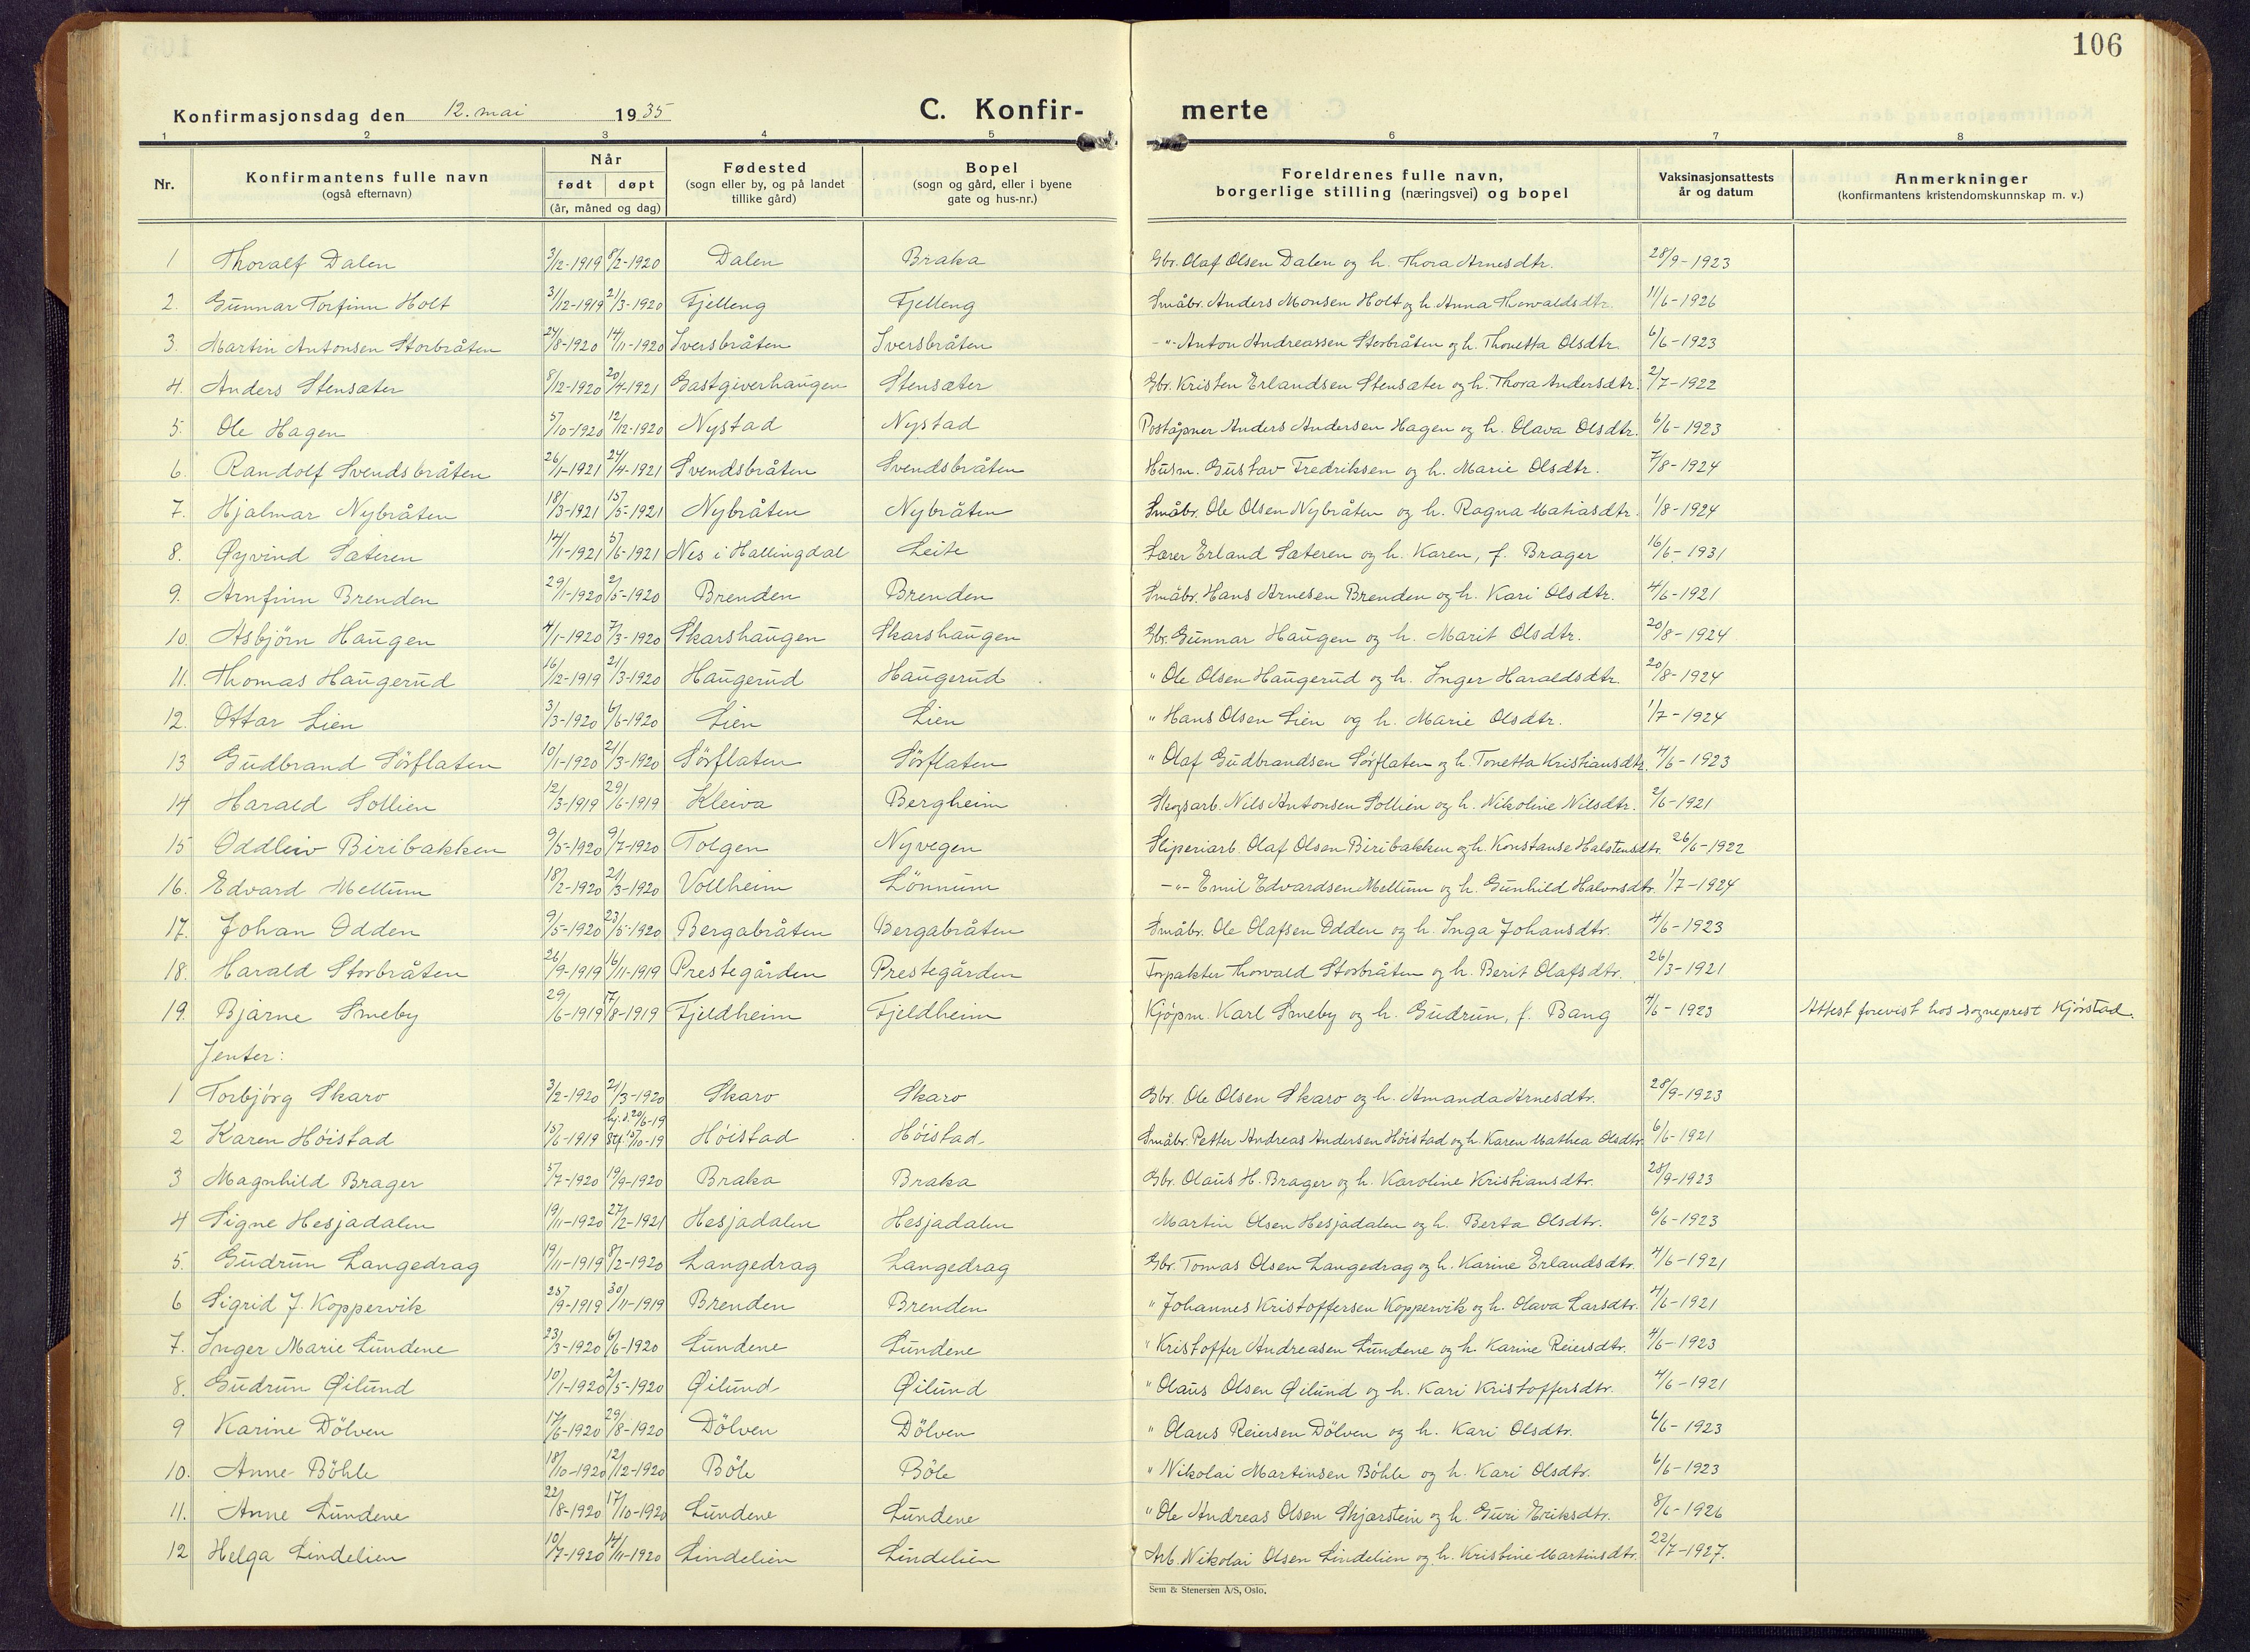 106
Konfirmasjonsdag den 12. mai 1935 C. Konfir- merte
1 2 3 4 5 6 7 8
Nr. Konfirmantens fulle navn (også efternavn) Når født døpt (år, måned og dag) Fødested (sogn eller by, og på landet tillike gård) Bopel (sogn og gård, eller i byene gate og hus-nr.) Foreldrenes fulle navn, borgerlige stilling (næringsvei) og bopel Vaksinasjonsattests år og datum Anmerkninger (konfirmantens kristendomskunnskap m. v.)
1 Thoralf Dalen 3/12-1919 8/2-1920 Dalen Braka Gbr. Olaf Olsen Dalen og h. Thora Arnesdtr. 28/9-1923
2. Gunnar Torfinn Holt 31/12-1919 21/3-1920 Fjelleng Fjelleng Småbr. Anders Monsen Holt og h. Anna Thorvaldsdtr. 11/6-1926
3. Martin Antonsen Storbråten 24/8-1920 14/11-1920 Iversbråten Iversbråten -"- Anton Andreassen Storbråten og h. Thonetta Olsdtr. 6/6-1923
4. Anders Stensæter 8/12-1920 20/4-1921 Gastgiverhaugen Stensæter Gbr. Kristen Erlandsen Stensæter og h. Thora Andersdtr. 2/7-1922
5. Ole Hagen 5/10-1920 12/12-1920 Nystad Nystad Poståpner Anders Andersen Hagen og h. Olava Olsdtr. 6/6-1923
6. Randolf Svendsbråten 26/1-1921 24/4-1921 Svendsbråten Svendsbråten Husm. Gustav Fredriksen og h. Marie Olsdtr. 7/8-1924
7. Hjalmar Nybråten 18/3-1921 15/5-1921 Nybråten Nybråten Småbr. Ole Olsen Nybråten og h. Ragna Matiasdtr. 1/8-1924
8. Øyvind Sæteren 14/1-1921 5/6-1921 Nes i Hallingdal Leite Lærer Erland Sæteren og h. Karen, f. Brager 16/6-1931
9. Arnfinn Brenden 29/1-1920 2/5-1920 Brenden Brenden Småbr. Hans Arnesen Brenden og h. Kari Olsdtr. 4/6-1921
10. Asbjørn Haugen 4/1-1920 7/3-1920 Skarshaugen Skarshaugen Gbr. Gunnar Haugen og h. Marit Olsdtr. 20/8-1924
11. Thomas Haugerud 16/12-1919 21/3-1920 Haugerud Haugerud " Ole Olsen Haugerud og h. Inger Haraldsdtr. 20/8-1924
12. Ottar Lien 3/3-1920 6/6-1920 Lien Lien " Hans Olsen Lien og h. Marie Olsdtr. 1/7-1924
13 Gudbrand Sörflaten 10/1-1920 21/3-1920 Sörflaten Sörflaten " Olaf Gudbrandsen Sörflaten og h. Tonetta Kristiansdtr. 4/6-1923
14 Harald Sollien 12/3-1919 29/6-1919 Kleiva Bergheim Skogsarb. Nils Antonsen Sollien og h. Nikoline Nilsdtr. 2/6-1921
15 Oddleiv Biribakken 9/5-1920 9/7-1920 Tolgen Nyvegen Sliperiarb. Olaf Olsen Biribakken og h. Konstanse Halstensdtr. 26/6-1922
16. Edvard Mellum 18/2-1920 21/3-1920 Vollheim Lönnum -"- Emil Edvardsen Mellum og h. Gunhild Halvorsdtr. 1/7-1924
17. Johan Odden 9/5-1920 23/5-1920 Bergabråten Bergabråten Småbr. Ole Olafsen Odden og h. Inga Johansdtr. 4/6-1923
18. Harald Storbråten 26/9-1919 16/11-1919 Prestegården Prestegården Forpakter Thorvald Storbråten og h. Berit Olafsdtr. 26/3-1921
19. Bjarne Smeby 29/6-1919 17/8-1919 Fjeldheim Fjeldheim Kjøpm. Karl Smeby og h. Gudrun, f. Bang 4/6-1923 Attest forevist hos sogneprest Kjörstad.
Jenter:
1 Torbjörg Skaro 3/2-1920 21/3-1920 Skaro Skaro Gbr. Ole Olsen Skaro og h. Amanda Arnesdtr. 28/9-1923
2 Karen Höistad 15/6-1919 hj.d. 20/6-19 Stf. 5/10-19 Höistad Höistad Småbr. Petter Andreas Andersen Höistad og h. Karen Mathea Olsdtr. 6/6-1921
3 Magnhild Brager 5/7-1920 19/9-1920 Braka Braka Gbr. Olaus H. Brager og h. Karoline Kristiansdtr. 28/9-1923
4 Signe Hesjadalen 19/11-1920 27/2-1921 Hesjadalen Hesjadalen Martin Olsen Hesjadalen og h. Berta Olsdtr. 6/6-1923
5. Gudrun Langedrag 19/11-1919 8/2-1920 Langedrag Langedrag Gbr. Tomas Olsen Langedrag og h. Karine Erlandsdtr. 4/6-1921
6 Sigrid J. Koppervik 25/9-1919 30/11-1919 Brenden Brenden " Johannes Kristoffersen Koppervik og h. Olava Larsdtr. 4/6-1921
7. Inger Marie Lundene 23/3-1920 6/6-1920 Lundene Lundene " Kristoffer Andreasen Lundene og h. Karine Reiersdtr. 4/6-1923
8. Gudrun Øilund 10/1-1920 2/5-1920 Øilund Øilund " Olaus Olsen Øilund og h. Kari Kristoffersdtr. 4/6-1921
9 Karine Dölven 17/6-1920 29/8-1920 Dölven Dölven " Olaus Reiersen Dölven og h. Kari Olsdtr. 6/6-1923
10. Anne Böhle 18/10-1920 12/12-1920 Böle Böle " Nikolai Martinsen Böhle og h. Kari Olsdtr. 6/6-1923
11. Anne Lundene 22/8-1920 17/10-1920 Lundene Lundene " Ole Andreas Olsen Skjarstein og h. Guri Eriksdtr. 8/6-1926
12 Helga Lindelien 10/7-1920 14/11-1920 Lindelien Lindelien Arb. Nikolai Olsen Lindelien og h. Kristine Martinsdtr. 22/7-1927.
Sem & Stenersen A/S, Oslo.